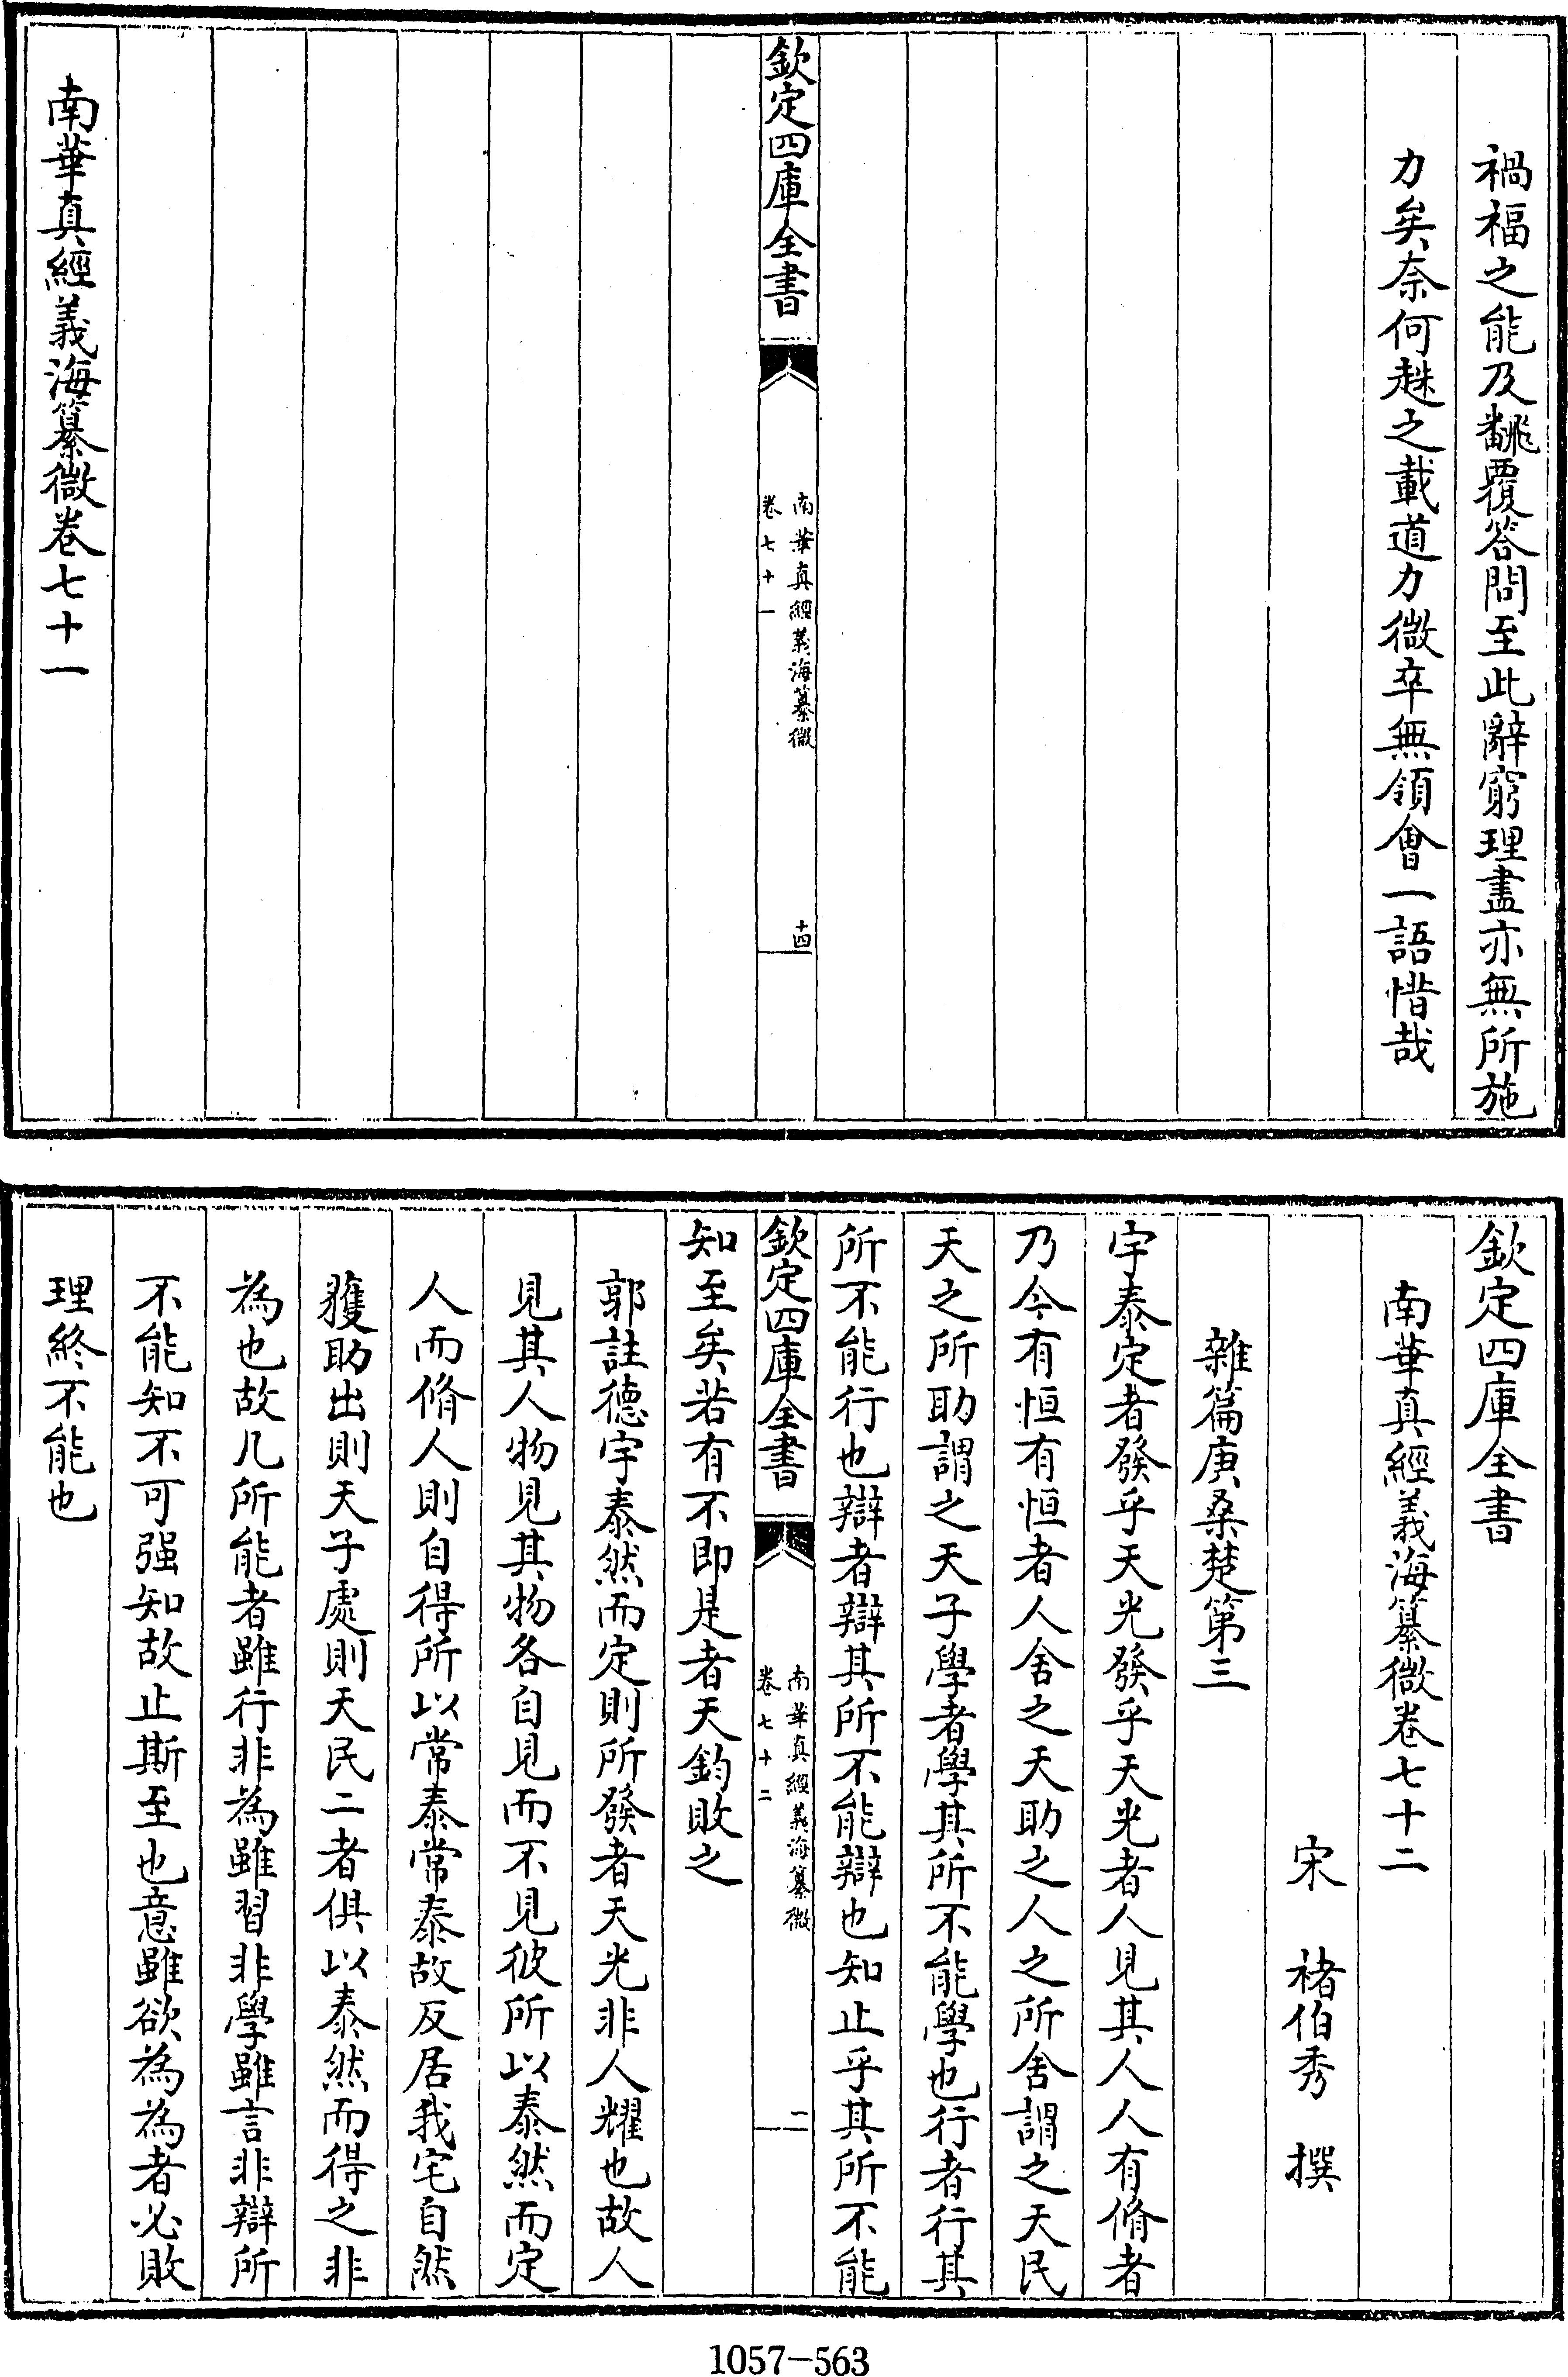 禍福之能及翻覆答問至此辭窮理盡亦無所施
力矣奈何趎之載道力微卒無領會一語惜哉
欽定四庫全書
南華真經義海纂微
卷七十一
十四
南華真經義海纂微卷七十一
欽定四庫全書
南華真經義海纂微卷七十二
宋 褚伯秀 撰
雜篇庚桑楚第三
宇泰定者發乎天光發乎天光者人見其人人有脩者
乃今有恒有恒者人舍之天助之人之所舍謂之天民
天之所助謂之天子學者學其所不能學也行者行其
所不能行也辯者辯其所不能辯也知止乎其所不能
欽定四庫全書
南華真經義海纂微
卷七十二
一
知至矣若有不即是者天鈞敗之
郭註德宇泰然而定則所發者天光非人耀也故人
見其人物見其物各自見而不見彼所以泰然而定
人而脩人則自得所以常泰常泰故反居我宅自然
獲助出則天子處則天民二者俱以泰然而得之非
為也故凡所能者雖行非為雖習非學雖言非辯所
不能知不可强知故止斯至也意雖欲為為者必敗
理終不能也
1057-563